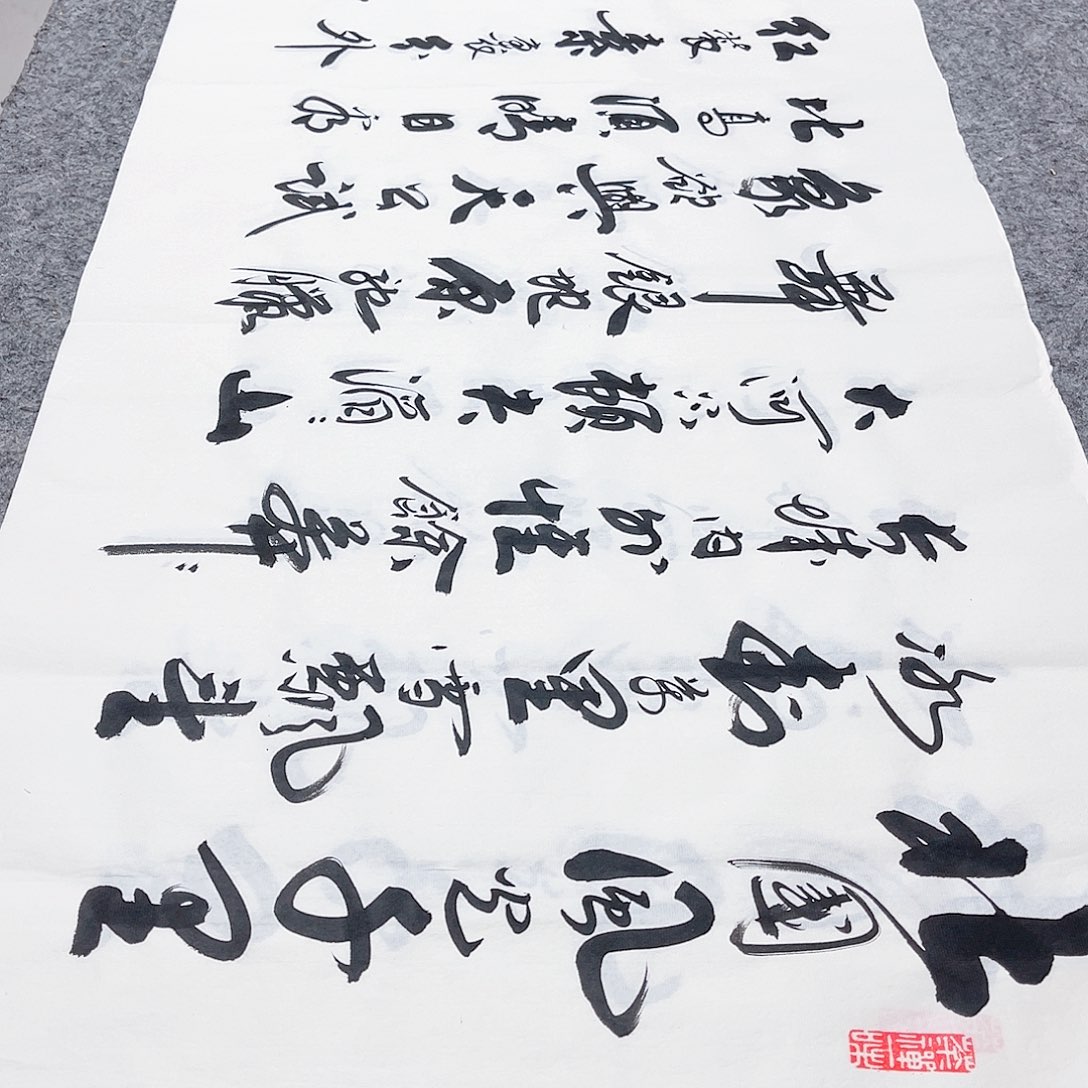 北國風光千里
冰封万里雪飄望
長城内外惟餘莽〻
大河上下頓失滔〻山
舞銀蛇原馳蠟
象欲與天公試
比高須晴日看
紅裝素裹分外